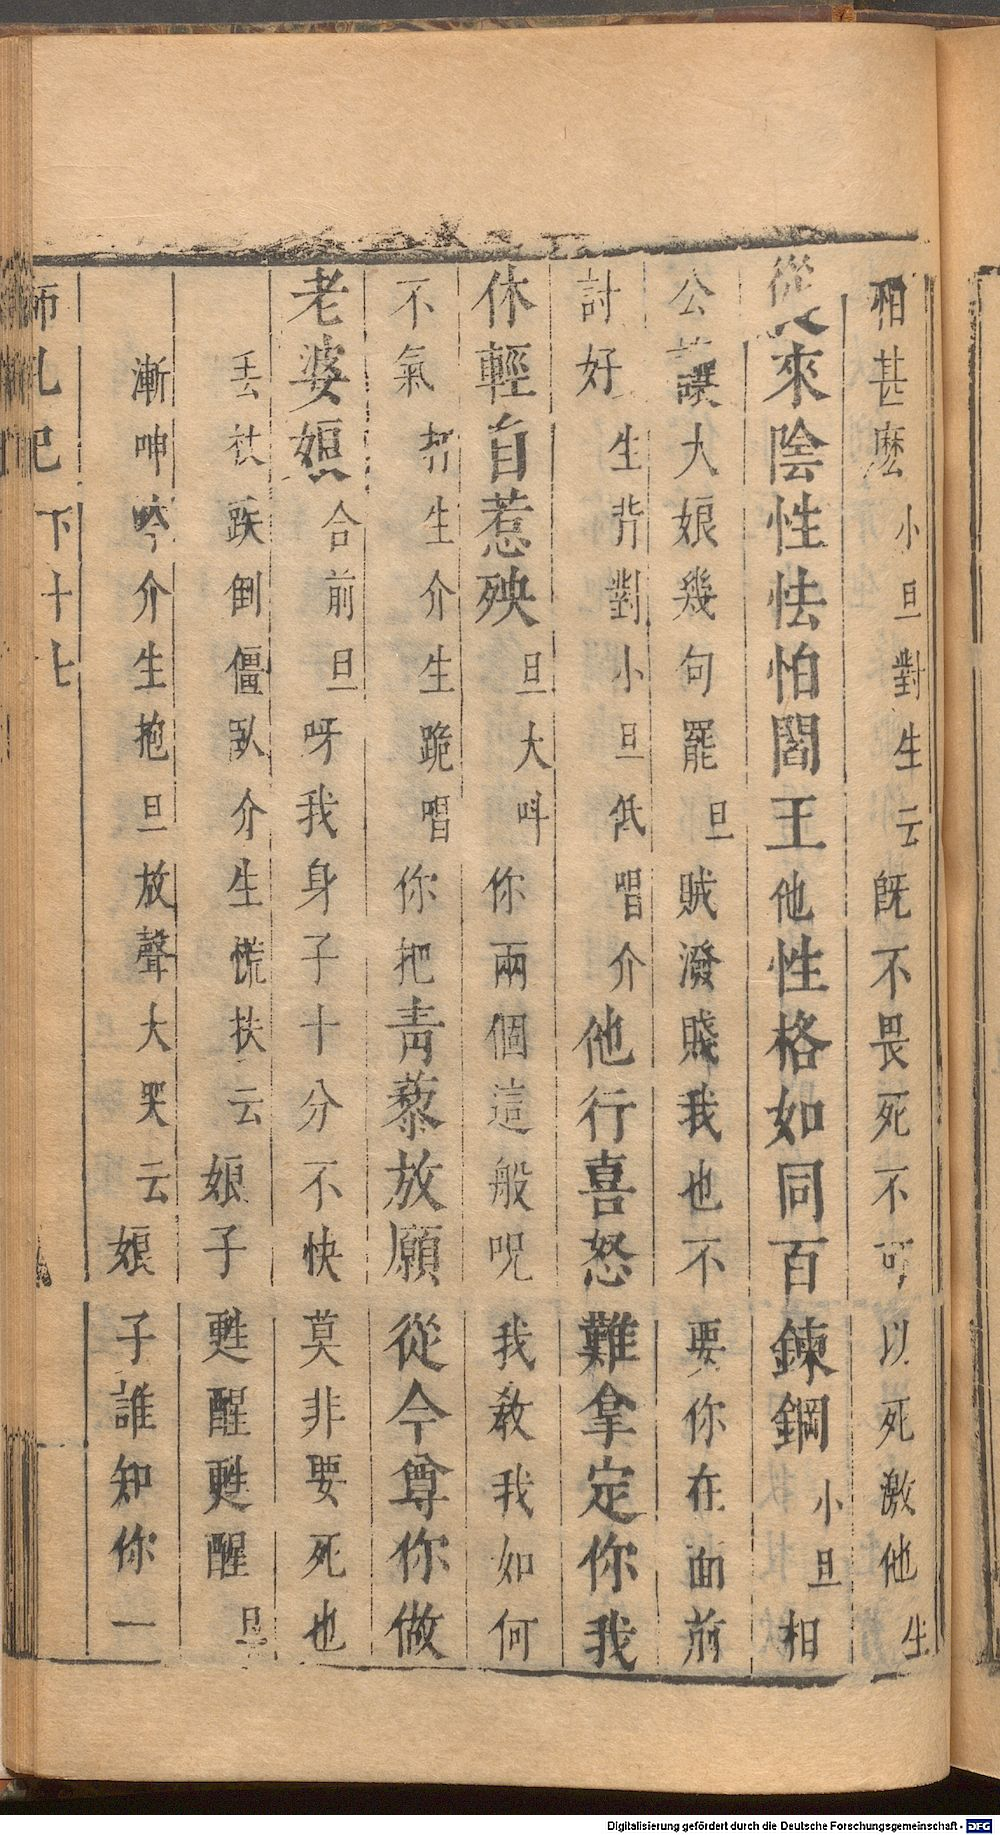 相甚麽小旦對生云既不畏死不可以死激他生
從來陰性怯怕閻王他性格如同百鍊鋼小旦相
公讓大娘幾句罷旦賊潑賤我也不要你在面前
討好生背對小旦低唱介他行喜怒難拿定你我
休輕自惹殃旦大呌你兩個這般呪我敎我如何
不氣打生介生跪唱你把青藜放願從今尊你做
老婆娘合前旦呀我身子十分不快莫非要死也
丟杖跌倒僵臥介生慌扶云娘子甦醒甦醒旦
漸呻吟介生抱旦放聲大哭云娘子誰知你一
下十七
Digitalisierung gefördert durch die Deutsche Forschungsgemeinschaft - DFG